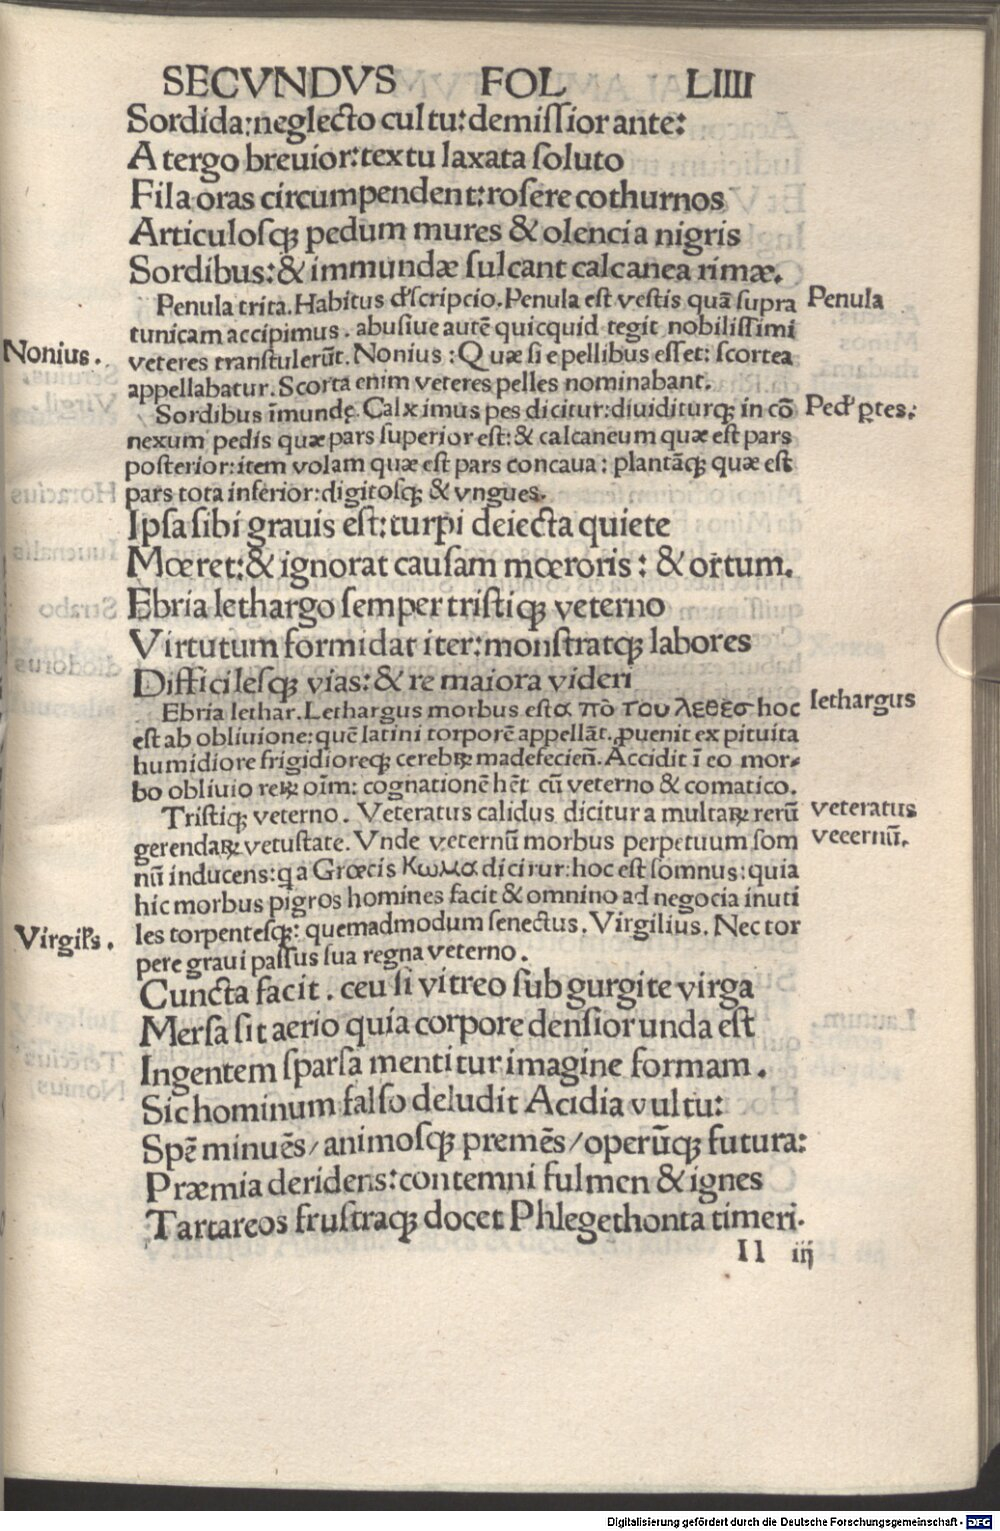 SECVNDVS FOL LIIII
Sordida:neglecto cultu:demiſſior ante:
A tergo breuior:textu laxata ſoluto
Fila oras circumpendent:roſere cothurnos
Articuloſqȝ pedum mures & olencia nigris
Sordibus:& immundæ ſulcant calcanea rimæ.
Penula trita. Habitus dſcripcio. Penula eſt veſtis quā ſupra
Penula
tunicam accipimus. abuſiue autē quicquid tegit nobiliſſimi
Nonius.
veteres tranſtulerūt. Nonius : Quæ ſi e pellibus eſſet: ſcortea
appellabatur. Scorta enim veteres pelles nominabant.
Sordibus īmundę. Calx imus pes dicitur:diuiditurqȝ in cō
Ped' ꝑtes.
nexum pedis quæ pars ſuperior eſt:& calcaneum quæ eſt pars
poſterior:item volam quæ eſt pars concaua: plantāqȝ quæ eſt
pars tota inferior:digitoſqȝ & vngues.
Ipſa ſibi grauis eſt:turpi deiecta quiete
Mœret:& ignorat cauſam mœroris: & ortum.
Ebria lethargo ſemper triſtiqȝ veterno
Virtutum formidat iter:monſtratqȝ labores
Difficileſqȝ vias:& re maiora videri
Ebria lethar. Lethargus morbus eſt α πὸ του λεθεσ hoc
lethargus
eſt ab obliuione:quē latini torporē appellāt. ꝓuenit ex pituita
humidiore frigidioreqȝ cerebꝝ madefecien̄. Accidit ī eo mor-
bo obliuio reꝝ oīm: cognationē hēt cū veterno & comatico.
Triſtiqȝ veterno. Veteratus calidus dicitur a multaꝝ rerū
veteratus
gerendaꝝ vetuſtate. Vnde veternū morbus perpetuum ſom
vecernū.
nū inducens:q a Græcis Κωμα dicirur:hoc eſt ſomnus:quia
hic morbus pigros homines facit & omnino ad negocia inuti
les torpenteſqȝ: quemadmodum ſenectus. Virgilius. Nec tor
Virgiľs.
pere graui paſſus ſua regna veterno.
Cuncta facit. ceu ſi vitreo ſub gurgite virga
Merſa ſit aerio quia corpore denſior unda eſt
Ingentem ſparſa mentitur imagine formam.
Sic hominum falſo deludit Acidia vultu:
Spē minuēs/animoſqȝ premēs/operūqȝ futura:
Præmia deridens:contemni fulmen & ignes
Tartareos fruſtraqȝ docet Phlegethonta timeri.
II iij
Digitalisierung gefördert durch die Deutsche Forschungsgemeinschaft - DFG